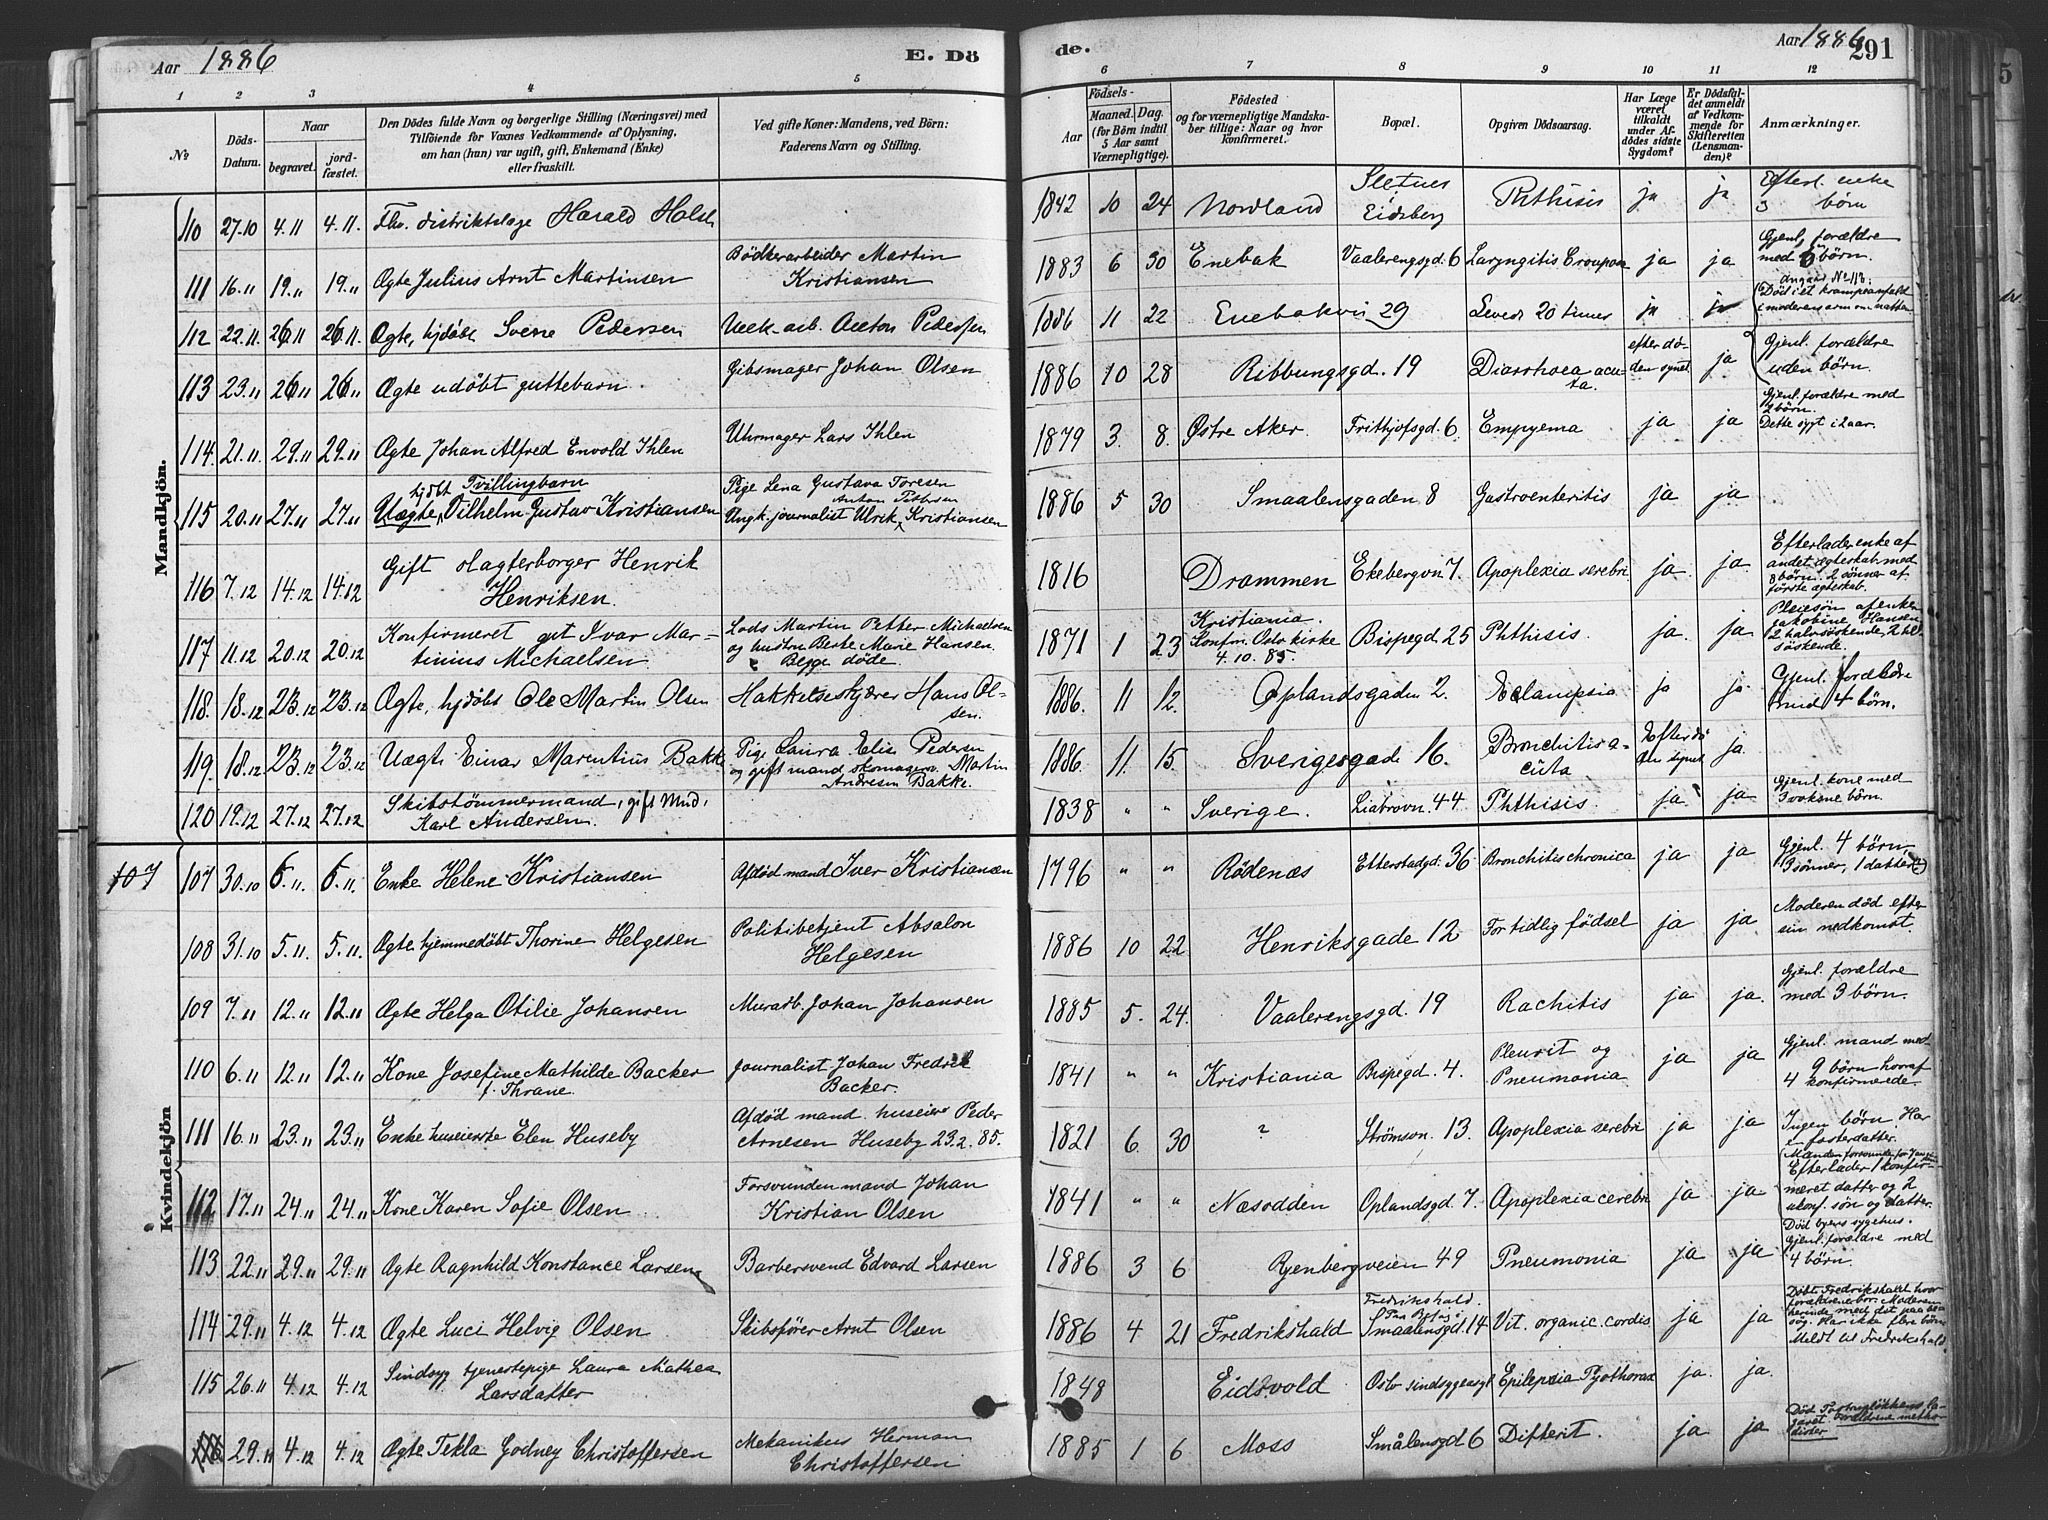 Aar 1886
E. Dö
de.
Aar 1886
291
1 2 3 4 5
6 7 8 9 10 11 12
No
Döds-Datum.
Naar
begravet.
jord-fæstet.
Den Dödes fulde Navn og borgerlige Stilling (Næringsvei) med
Tilföiende for Voxnes Vedkommende af Oplysning,
om han (hun) var ugift, gift, Enkemand (Enke)
eller fraskilt.
Ved gifte Koner: Mandens, ved Börn:
Faderens Navn og Stilling.
Födsels-
Aar
Maaned. Dag.
(for Börn indtil
5 Aar samt
Værnepligtige).
Födested
og for værnepligtige Mandska-
ber tillige: Naar og hvor
konfirmeret.
Bopæl.
Opgiven Dödsaarsag.
Har Læge
været
tilkaldt
under Af-
dödes sidste
Sygdom?
Er Dödsfal-
det anmeldt
af Vedkom-
mende for
Skifteretten
(Lensman-
den)?
Anmærkninger.
Mandkjön.
110 27.10 4.11 4.11. Fhv. distriktslæge Harald Holst 1842 10 24 Nordland Sletnes Eidsberg Phthisis ja ja Efterl. enke 3 börn
111 16.11 19.11 19.11 Ægte Julius Arnt Martinsen Bödkerarbeider Martin Kristiansen 1883 6 30 Enebak Vaalerengsgd. 6 Laryngitis Crouposa ja ja Gjenl. forældre med börn.
112 22.11. 26.11 26.11. Ægte, hjdöbt Svene Pedersen Væk. arb. Anton Pedersen 1886 11 22 Enebakvn 29 Levede 20 timer ja ja
Angaar No 113: Död i et krampeanfald i moderens arm om natten
113 23.11 26.11 26.11 Ægte udöbt guttebarn. Gibsmager Johan Olsen 1886 10 28 Ribbungsgd. 19 Diarrhoea acuta. efter döden synet ja Gjenl. forældre uden börn.
114. 21.11. 29.11 29.11 Ægte Johan Alfred Envold Ihlen Uhrmager Lars Ihlen 1879 3. 8. Östre Aker. Frithjofsgd. 6. Empyema ja ja Gjenl. forældre med 2 börn. Dette sygt i 2 aar.
115 20.11 27.11 27.11 Uægte, hjdöbt Tvillingbarn Vilhelm Gustav Kristiansen Pige Lena Gustava Toresen Ungk. journalist Ulrik Anton Kristiansen 1886 5 30 Smaalensgaden 8 Gastroenteritis ja ja
116 7.12 14.12 14.12 Gift slagterborger Henrik Henriksen. 1816 Drammen Ekebergvn 7. Apoplexia serebri ja. ja. Efterlader enke af andet ægteskab med 8 börn. 2 sönner af förste ægteskab.
117 11.12 20.12 20.12 Konfirmeret gut Ivar Martinius Michaelsen Lods Martin Petter Michaelsen og hustru Berte Marie Hansen. Begge döde. 1871 1 23 Kristiania. Konfirm. Oslo kirke 4.10.85. Bispegd. 25 Phthisis. ja. ja Pleiesön af enke Jakobine Hansen, 2 halvsöskende, 2 helsöskende.
118. 18.12 23.12 23.12 Ægte, hjdöbt Ole Martin Olsen Hakkelseskjærer Hans Olsen. 1886. 11 12. Oplandsgaden 2. Eclampsia ja ja Gjenl. forældre med 4 börn.
119. 18.12 23.12 23.12 Uægte Einar Marentius Bakke Pige Laura Elise Pedersen og gift mand skomagersv. Martin Andresen Bakke. 1886. 11. 15. Sverigesgade 16. Bronchitis acuta Efter döden synet ja.
120 19.12 27.12 27.12 Skibstömmermand, gift Mand, Karl Andersen. 1838 " " Sverige. Liabrovn. 44 Phthisis. ja ja Gjenl. kone med 3 voksne börn.
Kvindekjön
107 107 30.10 5.11. 5.11. Enke Helene Kristiansen Afdöd mand Iver Kristiansen 1796 " " Rödenæs Etterstadgd. 36 Bronchitis chronica ja ja Gjenl. 4 börn (3 sönner, 1 datter)
108 31.10 5.11. 5.11. Ægte hjemmedöbt Thorine Helgesen Politibetjent Absalon Helgesen 1886 10 22. Henriksgade 12 For tidlig födsel ja ja Moderen död efter sin nedkomst.
109 7.11 12.11 12.11 Ægte Helga Otilie Johansen Murarb. Johan Johansen 1885 5. 24. Vaalerengsgd. 19 Rachitis ja ja. Gjenl. forældre med 3 börn.
110 6.11 12.11 12.11 Kone Josefine Mathilde Backer f. Thrane. Journalist Johan Fredrik Backer. 1841 " " Kristiania Bispegd. 4. Pleurit og Pneumonia ja ja Gjenl. mand med 9 börn hvoraf 4 konfirmerede
111 16.11 23.11 23.11 Enke huseierske Elen Huseby Afdöd mand huseier Peder Arnesen Huseby 23.2.85. 1821 6. 30 ? Strömsvn. 13. Apoplexia serebri ja ja Ingen börn. Har en fosterdatter.
112 17.11 24.11 24.11 Kone Karen Sofie Olsen Forsvunden mand Johan Kristian Olsen 1841 " " Næsodden Oplandsgd 7. Apoplexia cerebri ja ja Efterlader 1 konfirmeret datter og 2 ukonf. sön og datter.
113 22.11 29.11 29.11 Ægte Ragnhild Konstance Larsen Barbersvend Edvard Larsen 1886 3 6 Ryenbergveien 49 Pneumonia ja ja Död byens sygehus. Gjenl. forældre med 4 börn.
114 29.11 4.12 4.12 Ægte Luci Helvig Olsen Skibsförer Arnt Olsen 1886 4 21 Fredrikshald Fredrikshald. Paa Besög i Smaalensgd. 14 Vit. organic. cordis ja ja Döbt Fredrikshald hvor forældrene bor. Moderen herinde med det paa besög. Har ikke flere börn. Meldt til Fredrikshald.
115 26.11 4.12 4.12 Sindsyg tjenestepige Laura Mathea Larsdatter 1848 Eidsvold Oslo sindsygeasyl Epilepsia Pyothorax ja. ja.
116 29.11 4.12 4.12 Ægte Tekla Godney Christoffersen Mekanikus Herman Christoffersen 1885 1 6 Moss Smålensgd 6 Difterit. ja ja forældrene methodister